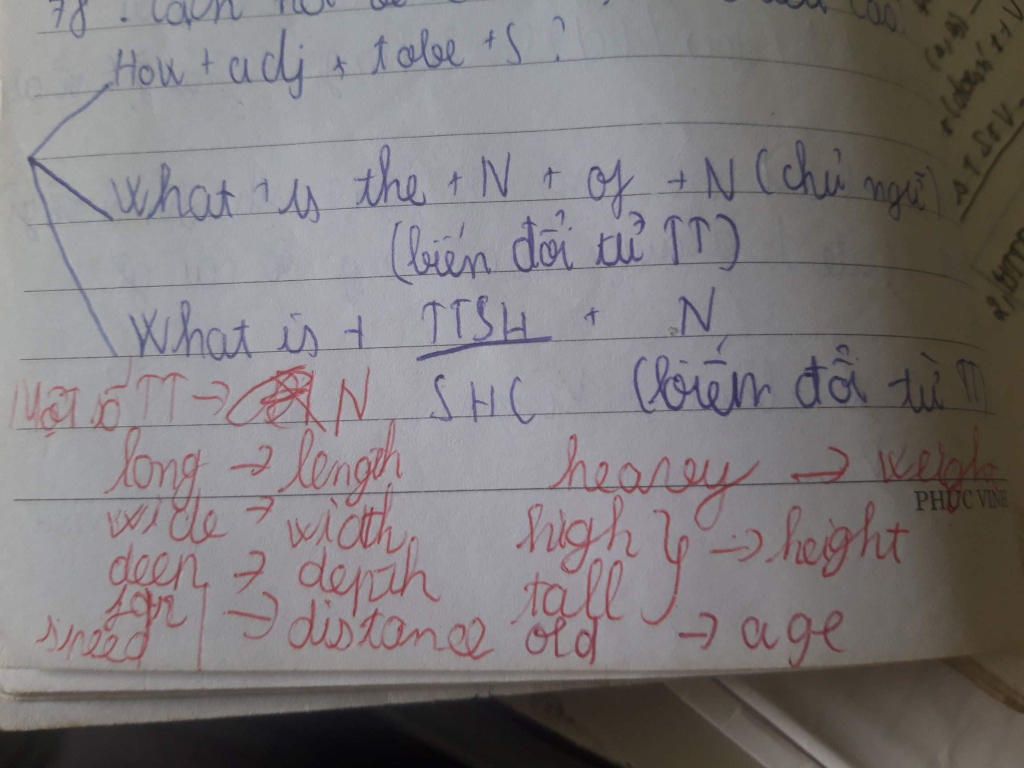 78. Cách nói
How + adj + tobe + S ?
What is the + N + of + N (chủ ngữ)
(biến đổi từ TT)
What is + TTSH + N
SHC (biến đổi từ TT
Một số TT → N
long → length heavey → weigh
PHÚC VINH
wide → width high
→ height
deep → depth tall
far → distance old → age
speed